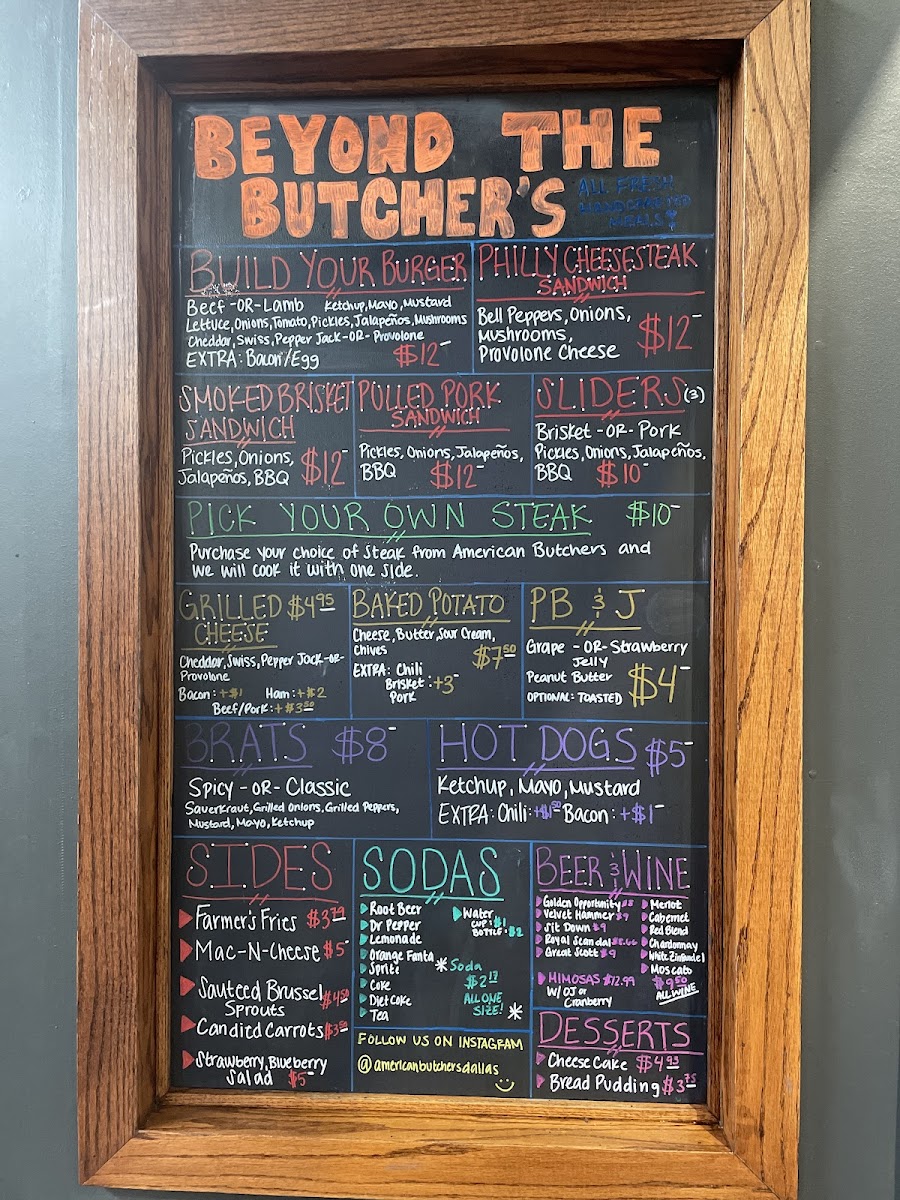 BEYOND THE
BUTCHER'S
ALL FRESH
HANDCRAFTED
MEALS!
BUILD YOUR BURGER
Beef -OR- Lamb Ketchup, Mayo, Mustard
Lettuce, Onions, Tomato, Pickles, Jalapeños, Mushrooms
Cheddar, Swiss, Pepper Jack -OR- Provolone
EXTRA: Bacon/Egg $12-
PHILLY CHEESESTEAK
SANDWICH
Bell Peppers, Onions,
Mushrooms,
Provolone Cheese $12-
SMOKED BRISKET
SANDWICH
Pickles, Onions,
Jalapeños, BBQ $12-
PULLED PORK
SANDWICH
Pickles, Onions, Jalapeños,
BBQ $12-
SLIDERS (3)
Brisket -OR- Pork
Pickles, Onions, Jalapeños,
BBQ $10-
PICK YOUR OWN STEAK $10-
Purchase your choice of steak from American Butchers and
we will cook it with one side.
GRILLED $4.95
CHEESE
Cheddar, Swiss, Pepper Jack -OR-
Provolone
Bacon: +$1 Ham: +$2
Beef/Pork: +$3.50
BAKED POTATO
Cheese, Butter, Sour Cream,
Chives $7.50
EXTRA: Chili
Brisket :+3-
Pork
PB & J
Grape -OR- Strawberry
Jelly
Peanut Butter $4-
OPTIONAL: TOASTED
BRATS $8-
Spicy -OR- Classic
Sauerkraut, Grilled Onions, Grilled Peppers,
Mustard, Mayo, Ketchup
HOT DOGS $5-
Ketchup, Mayo, Mustard
EXTRA: Chili: +$1.50 Bacon: +$1-
SIDES
Farmer's Fries $3.79
Mac-N-Cheese $5-
Sauteed Brussel
Sprouts $4.50
Candied Carrots $3.50
Strawberry, Blueberry
Salad $5-
SODAS
Root Beer
Dr Pepper
Lemonade
Orange Fanta
Sprite
Coke
Diet Coke
Tea
Water
CUP: $1
BOTTLE: $2
*Soda
$2.17
ALL ONE
SIZE! *
FOLLOW US ON INSTAGRAM
@americanbutchersdallas
BEER & WINE
Golden Opportunity $8
Velvet Hammer $9
Sit Down $9
Royal Scandal
Great Scott $9
MIMOSAS $12.99
W/ OJ or
Cranberry
Merlot
Cabernet
Red Blend
Chardonnay
White Zinfandel
Moscato
$9.50
ALL WINE
DESSERTS
Cheese Cake $4.93
Bread Pudding $3.75